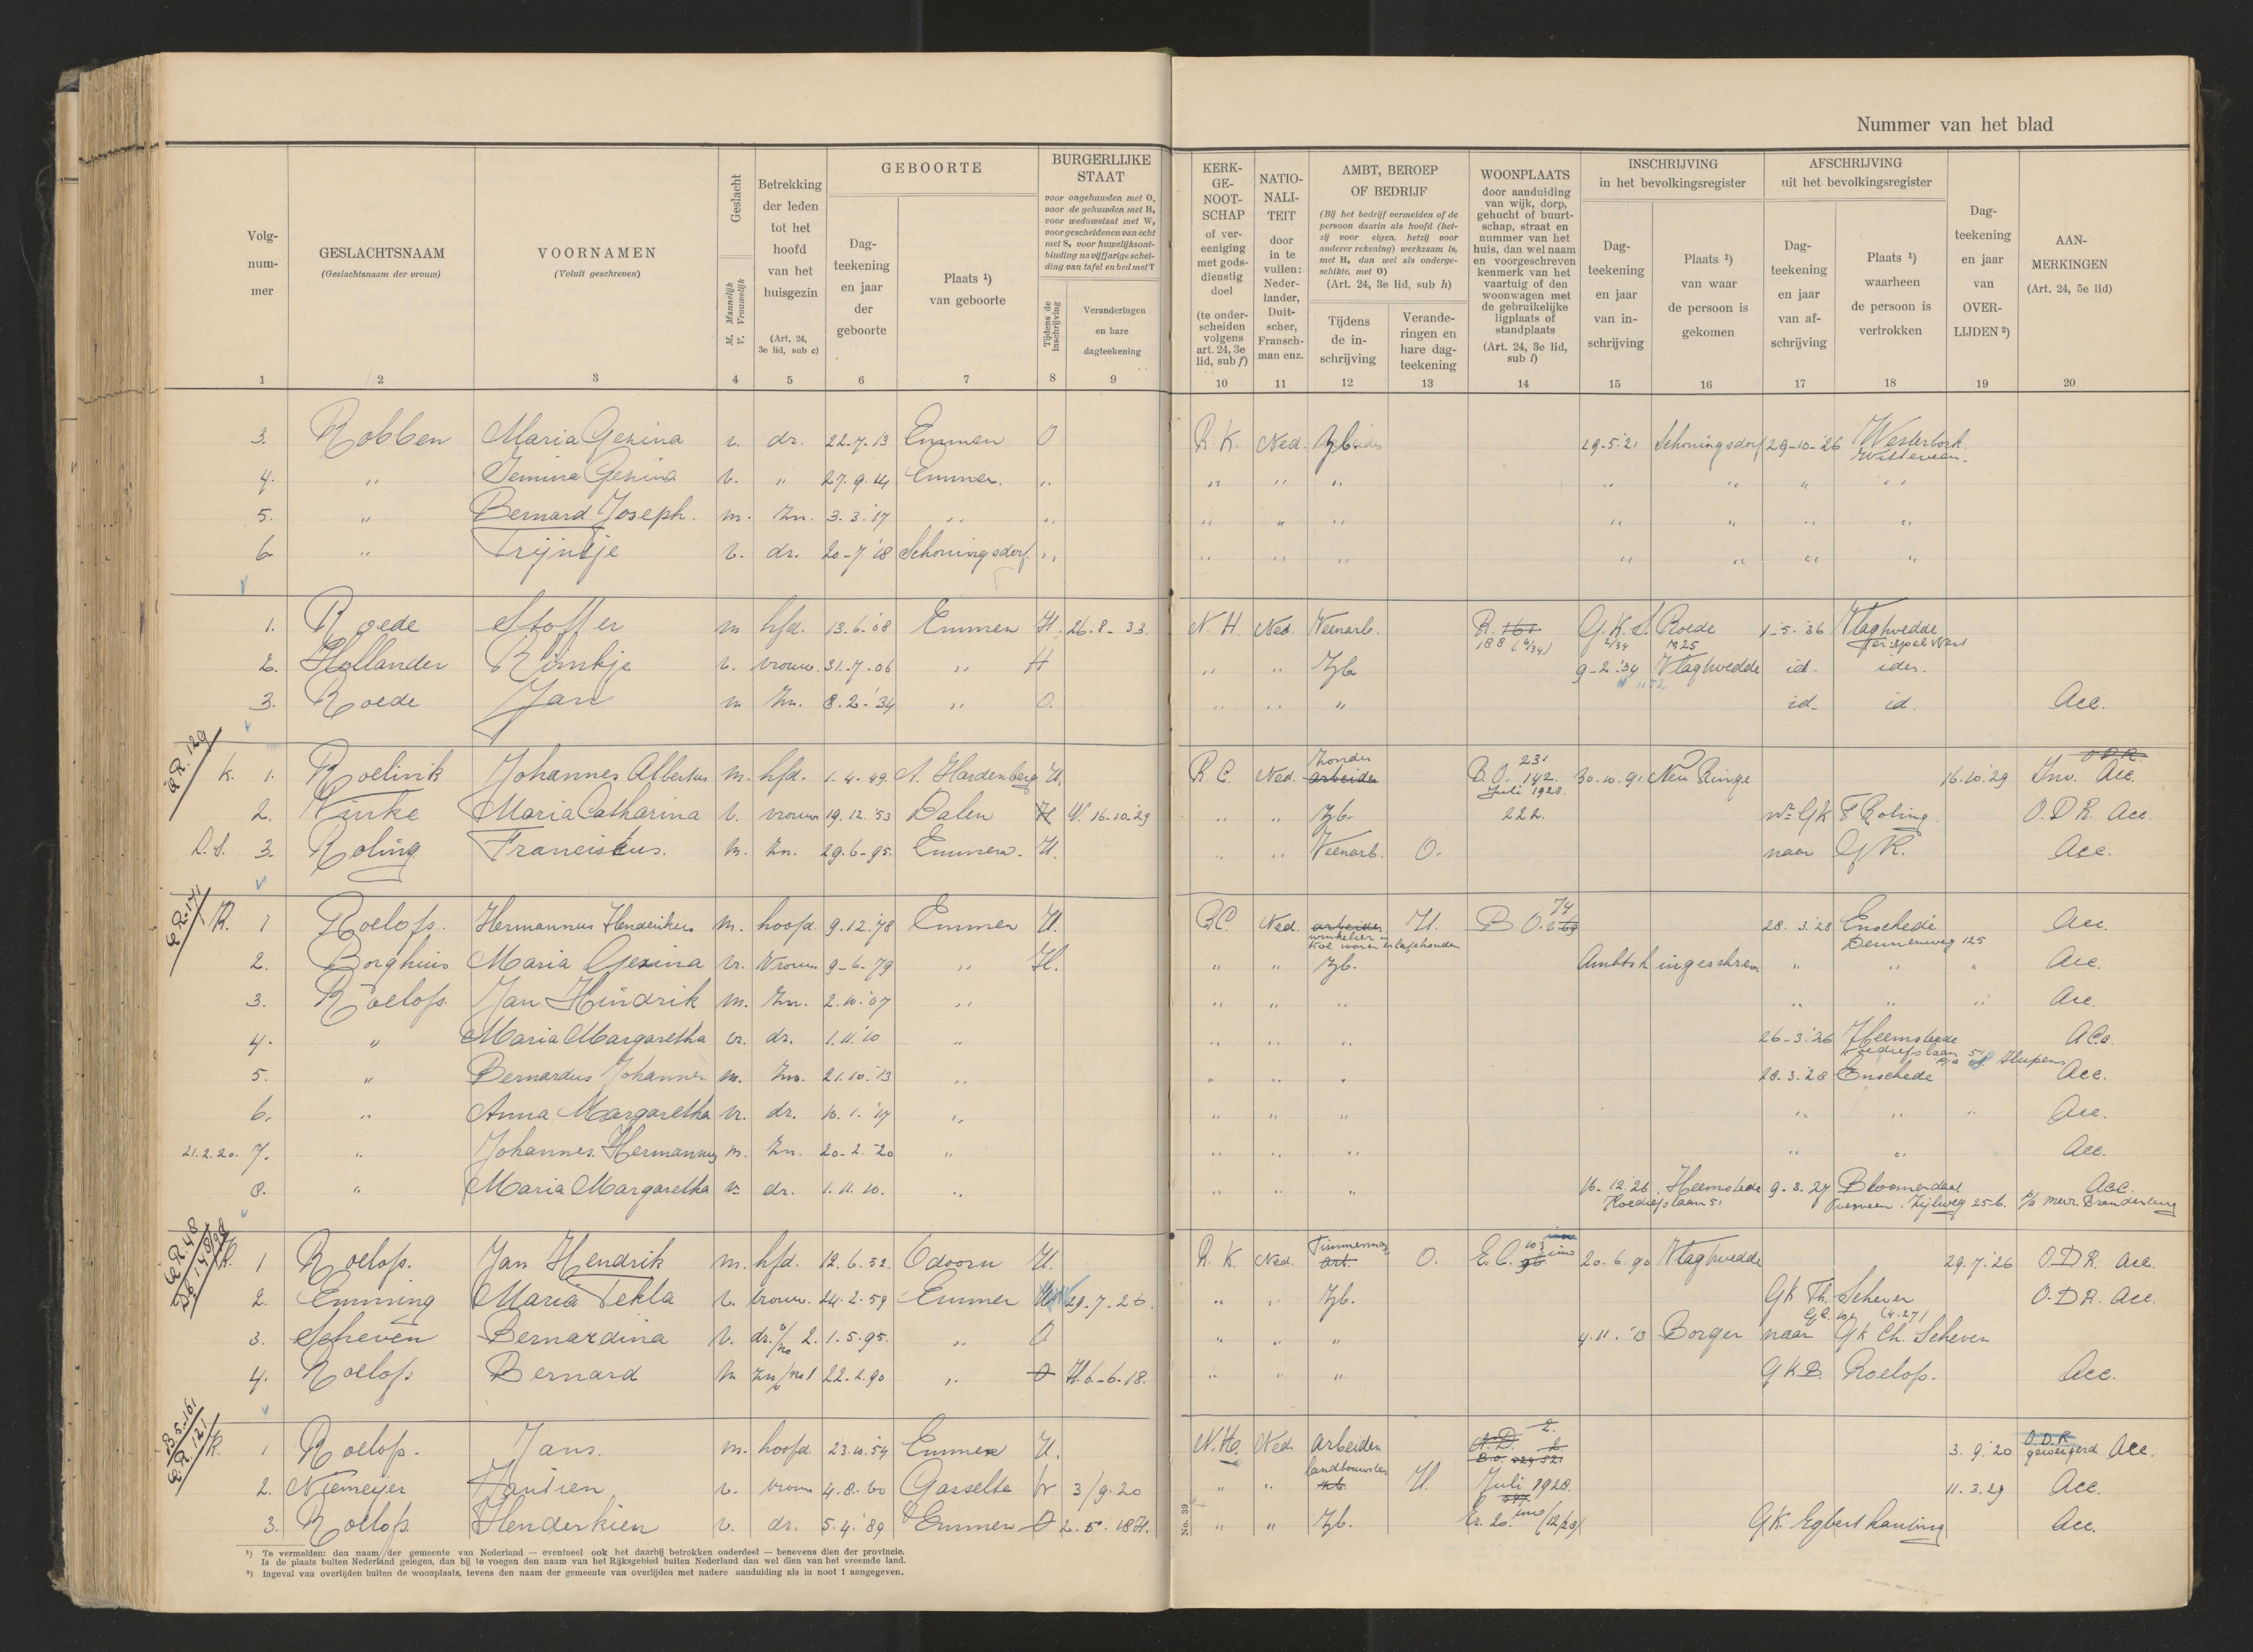 Nummer van het blad
Volg-
num-
mer
GESLACHTSNAAM
(Geslachtsnaam der vrouw)
VOORNAMEN
(Voluit geschreven)
Geslacht
M. Mannelijk
V. Vrouwelijk
Betrekking
der leden
tot het
hoofd
van het
huisgezin
(Art. 24,
3e lid, sub c)
GEBOORTE
Dag-
teekening
en jaar
der
geboorte
Plaats ¹)
van geboorte
BURGERLIJKE
STAAT
voor ongehuwden met O,
voor de gehuwden met H,
voor weduwstaat met W,
voor gescheidenen van echt
met S, voor huwelijksont-
binding na vijfjarige schei-
ding van tafel en bed met T
Tijdens de
inschrijving
Veranderingen
en hare
dagteekening
KERK-
GE-
NOOT-
SCHAP
of ver-
eeniging
met gods-
dienstig
doel
(te onder-
scheiden
volgens
art. 24, 3e
lid, sub f)
NATIO-
NALI-
TEIT
door
in te
vullen:
Neder-
lander,
Duit-
scher,
Fransch-
man enz.
AMBT, BEROEP
OF BEDRIJF
(Bij het bedrijf vermelden of de
persoon daarin als hoofd (het-
zij voor eigen, hetzij voor
anderer rekening) werkzaam is,
met H, dan wel als onderge-
schikte, met O)
(Art. 24, 3e lid, sub h)
Tijdens
de in-
schrijving
Verande-
ringen en
hare dag-
teekening
WOONPLAATS
door aanduiding
van wijk, dorp,
gehucht of buurt-
schap, straat en
nummer van het
huis, dan wel naam
en voorgeschreven
kenmerk van het
vaartuig of den
woonwagen met
de gebruikelijke
ligplaats of
standplaats
(Art. 24, 3e lid,
sub i)
INSCHRIJVING
in het bevolkingsregister
Dag-
teekening
en jaar
van in-
schrijving
Plaats ¹)
van waar
de persoon is
gekomen
AFSCHRIJVING
uit het bevolkingsregister
Dag-
teekening
en jaar
van af-
schrijving
Plaats ¹)
waarheen
de persoon is
vertrokken
Dag-
teekening
en jaar
van
OVER-
LIJDEN ²)
AAN-
MERKINGEN
(Art. 24, 5e lid)
1 2 3 4 5 6 7 8 9 10 11 12 13 14 15 16 17 18 19 20
3. Robben Maria Gezina v. dr. 22-7-13 Emmen O R.K. Ned. Zb 29-5-'21 Schoningsdorf 29-10-'26 Westerbork
Witteveen
4. " Gezina v. " 27.9.14 Emmen. " " " " " " " "
5. " Bernard Joseph. m. Zn. 3.3.'17 " " " " " " " " "
6. " Trijntje v. dr. 20-7-'18 Schoningsdorf " " " " " " " "
1. Roede Stoffer m hfd. 13.6.'08 Emmen H. 26.8-33 N.H. Ned. Veenarb. R. 161 G.K.S. Roede 1-5-'36 Vlagtwedde
188 M25 Ter Apel
2. Hollander v. vrouw. 31.7.06 " H " " Zb 9-2-'34 Vlagtwedde id. idem.
3. Roede Jan m Zn. 8.2-'34 " O. " " " id. id. Acc.
E.R. 129
K. 1. Roelink Johannes Albertus m. hfd. 1.4.49 A. Hardenberg H. R.C. Ned. Zonder arbeider B.O. 231 142. 30.10.91 Neu Ringe 16.10.'29 O.D.R. Inv. Acc.
Juli 1920.
2. Maria Catharina v. vrouw 19.12.'53 Dalen H W. 16.10.29 " " Zb. 222. G K F Roling O.D R. Acc.
3. Roling Franciscus. m. Zn. 29.6-95. Emmen. H. " " Veenarb. O. naar G K. Acc.
K. 1 Roelofs. Hermannus Henderikus m. hoofd. 9.12.'78 Emmen H. R.C. Ned. arbeider H. B.O. 74 28.3.28 Enschede Acc.
winkelier
Dennenweg 125
2. Borghuis Maria Gezina vr. Vrouw 9-6.79 " H. " " Zb. Ambtsh ingeschrev. " " " Acc.
3. Roelofs. Jan Hindrik m. Zn. 2.10.'07 " " " " " " " Acc.
4. " Maria Margaretha vr. dr. 1.11.'10 " " " " 26-3.'26 Heemstede Acc.
5. " Bernardus Johannes m. Zn. 21.10.'13 " " " " 28.3.'28 Enschede Acc.
6. " Anna Margaretha vr. dr. 10.1.'17 " " " " " " " Acc.
21.2.20. 7. " Johannes Hermannus m. Zn. 20-2.-20 " " " " " " Acc.
8. " Maria Margaretha v. dr. 1.11.10. " " " " 16-12.'26. Heemstede 9-3.27 Bloemendaal Acc.
Overveen. Zijlweg 256. p/a mevr.
E.R. 48
1 Roelofs. Jan Hendrik m. hfd. 12.6.52. Odoorn H. R.K. Ned. Timmerman O. E.C. 103 20.6.90 Vlagtwedde 29.7.'26 O.D R. Acc.
2. Emming Maria Tekla v. vrouw. 24.2.59 Emmen 29-7-26. " " Zb. G K Th. Scheven O.D R. Acc.
3. Scheven Bernardina v. dr. v/no 2. 1-5-95. " O " " " 4.11.'13 Borger naar G K Ch. Scheven
4. Roelofs Bernard m Zn v/no 1 22.2.90 " O H. 6-6-18. " " " G K B. Roelofs. Acc.
B S. 161
E.R. 121
K. 1 Roelofs. Jans. m. hoofd 23.10.'54 Emmen H. N.H. Ned. Arbeider 3.9.'20 O.D.R. geweigerd Acc.
landbouwster
2. Niemeijer Jantien v. vrouw 4.8.60 Gasselte 3/9.20 " " H. Juli 1920. 11.3.29 Acc.
3. Roelofs Henderkien v. dr. 5.4.'89 Emmen O 2-5-18 H. " " Zb. Er. 20. (12/28) G K. Egbert Lanting Acc.
No. 39
¹) Te vermelden: den naam der gemeente van Nederland — eventueel ook het daarbij betrokken onderdeel — benevens dien der provincie.
Is de plaats buiten Nederland gelegen, dan bij te voegen den naam van het Rijksgebied buiten Nederland dan wel dien van het vreemde land.
²) Ingeval van overlijden buiten de woonplaats, tevens den naam der gemeente van overlijden met nadere aanduiding als in noot 1 aangegeven.